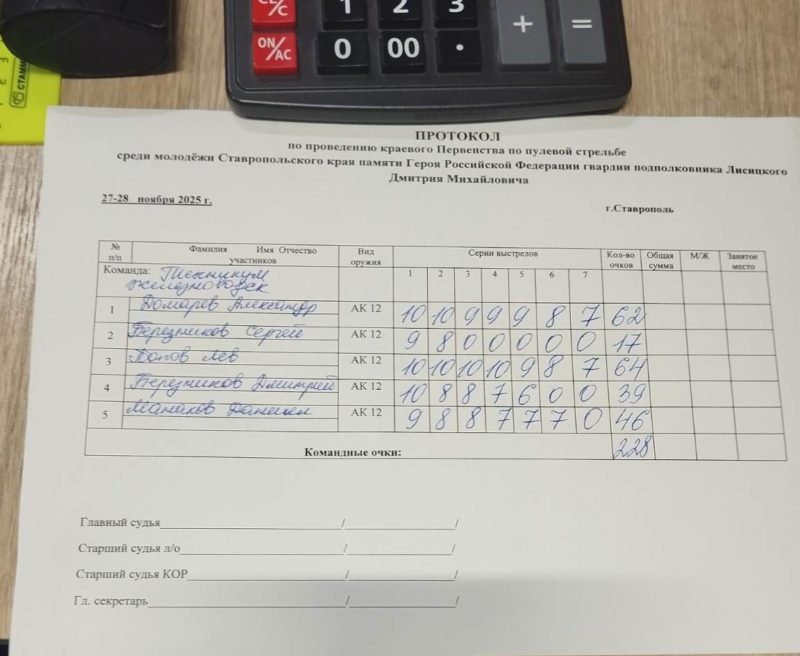 CE/C 1 2 3 + =
ON/AC 0 00 .
СТАММ
ПРОТОКОЛ
по проведению краевого Первенства по пулевой стрельбе
среди молодёжи Ставропольского края памяти Героя Российской Федерации гвардии подполковника Лисицкого
Дмитрия Михайловича
27-28 ноября 2025 г.
г.Ставрополь
№ п/п Фамилия Имя Отчество участников Вид оружия Серии выстрелов Кол-во очков Общая сумма М/Ж Занятое место
Команда: Техникум 1 2 3 4 5 6 7
железноводск
1 Домарев Александр АК 12 10 10 9 9 9 8 7 62
2 Березников Сергей АК 12 9 8 0 0 0 0 0 17
3 Попов Лев АК 12 10 10 10 10 9 8 7 64
4 Березников Дмитрий АК 12 10 8 8 7 6 0 0 39
5 Манаков Даниил АК 12 9 8 8 7 7 7 0 46
Командные очки: 228
Главный судья____________/____________/
Старший судья л/о____________/____________/
Старший судья КОР____________/____________/
Гл. секретарь____________/____________/